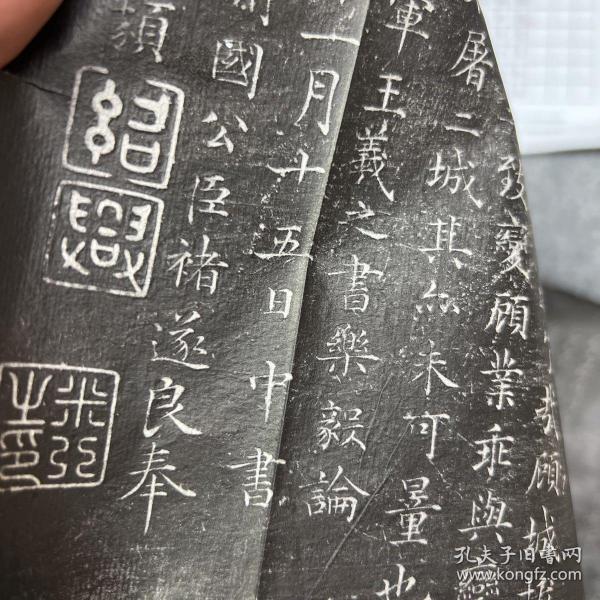 致變顧業乖與
屠二城其亦未可量也
軍王羲之書樂毅論
月廿五日中書
國公臣褚遂良奉
紹興
米芾之印
孔夫子旧书网
www.kongfz.com